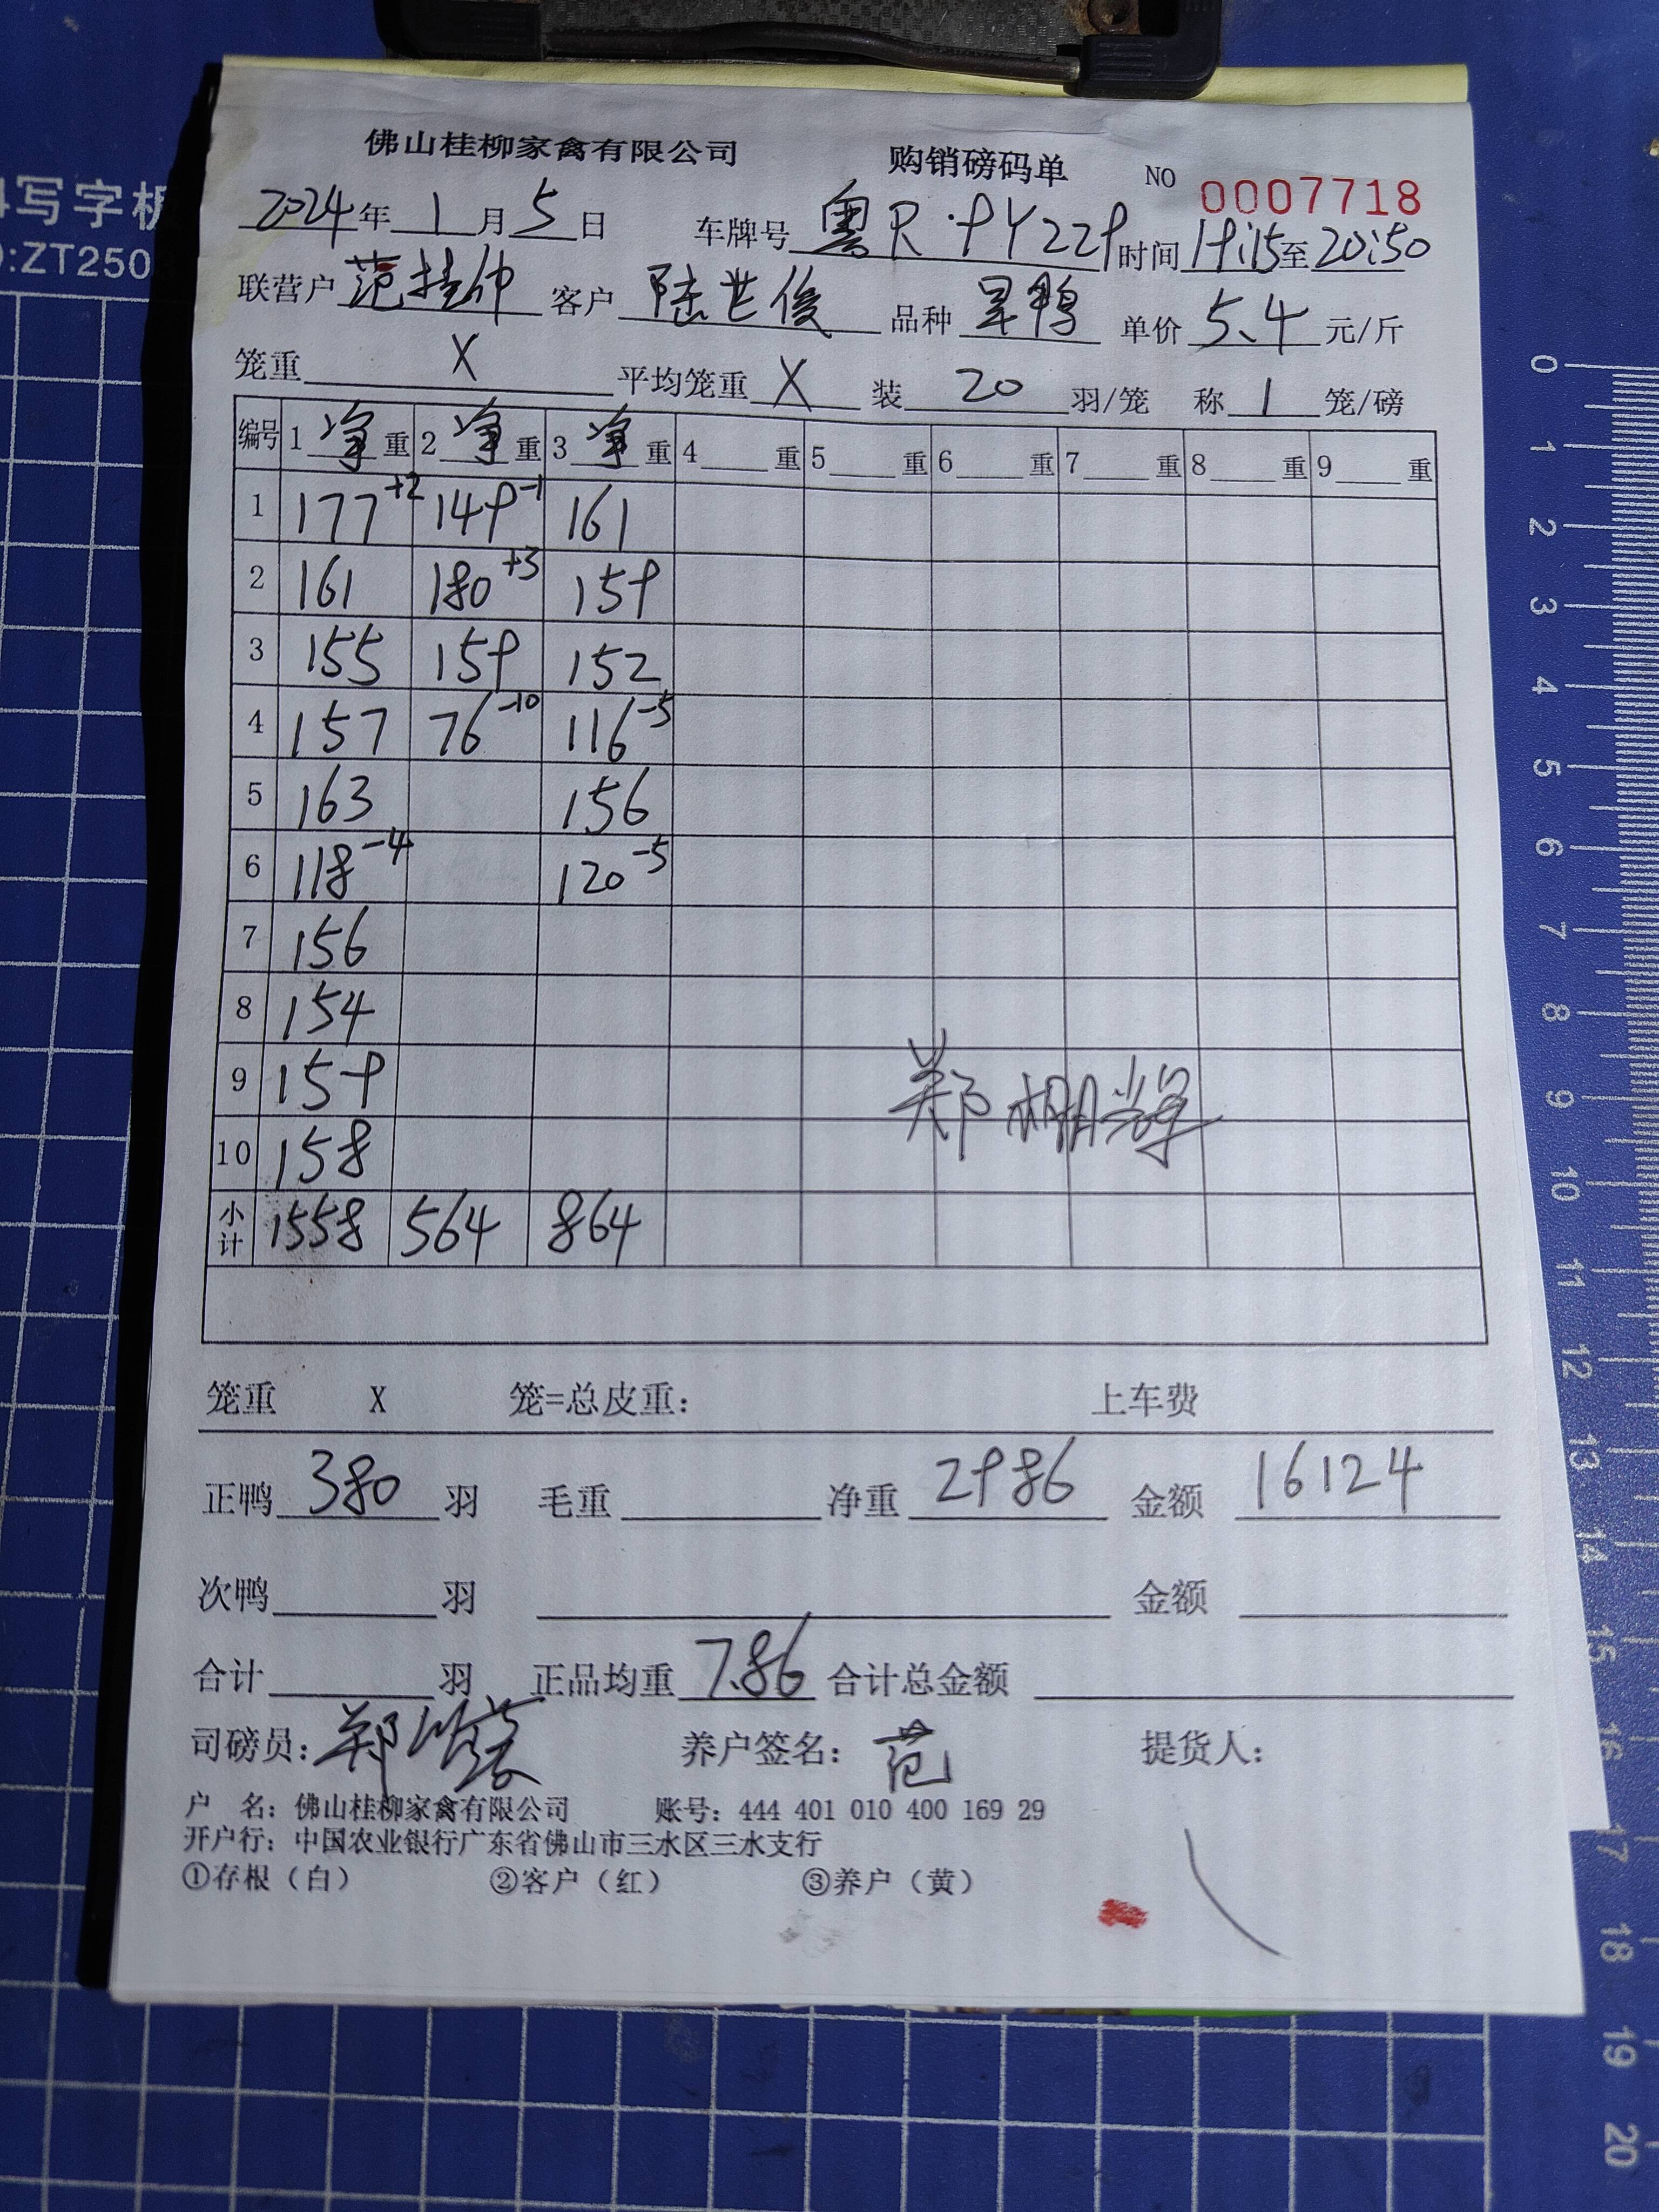 佛山桂柳家禽有限公司 购销磅码单 NO 0007718
2024年 1 月 5 日 车牌号 粤R·9Y229 时间 19:15 至 20:50
联营户 范桂仲 客户 陆世俊 品种 旱鸭 单价 5.4 元/斤
笼重 X 平均笼重 X 装 20 羽/笼 称 1 笼/磅
编号 1 净 重 2 净 重 3 净 重 4 重 5 重 6 重 7 重 8 重 9 重
1 177+2 149-1 161
2 161 180+3 159
3 155 159 152
4 157 76-10 116-5
5 163 156
6 118-4 120-5
7 156
8 154
9 159
10 158
小计 1558 564 864
笼重 X 笼=总皮重: 上车费
正鸭 380 羽 毛重 净重 2986 金额 16124
次鸭 羽 金额
合计 羽 正品均重 7.86 合计总金额
司磅员: 郑 养户签名: 范 提货人:
户 名: 佛山桂柳家禽有限公司 账号: 444 401 010 400 169 29
开户行: 中国农业银行广东省佛山市三水区三水支行
①存根（白） ②客户（红） ③养户（黄）
写字板
:ZT250
0
1
2
3
4
5
6
7
8
9
10
11
12
13
14
15
16
17
18
19
20